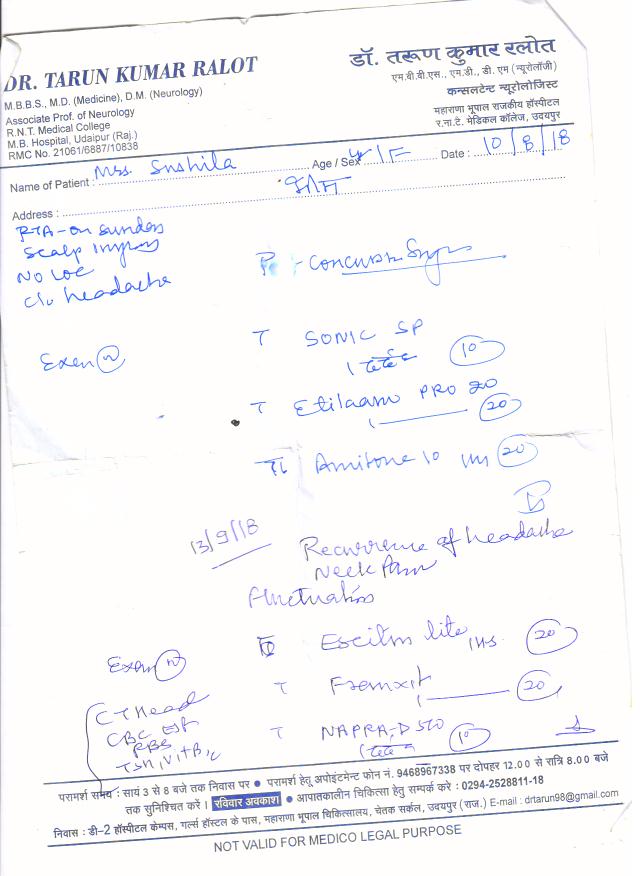 DR. TARUN KUMAR RALOT
M.B.B.S., M.D. (Medicine), D.M. (Neurology)
Associate Prof. of Neurology
R.N.T. Medical College
M.B. Hospital, Udaipur (Raj.)
RMC No. 21061/6887/10838
डॉ. तरूण कुमार रलोत
एम.बी.बी.एस., एम.डी., डी. एम (न्यूरोलॉजी)
कन्सलटेन्ट न्यूरोलोजिस्ट
महाराणा भूपाल राजकीय हॉस्पीटल
र.ना.टे. मेडिकल कॉलेज, उदयपुर
Name of Patient : Mrs. Sushila Age / Sex / F Date : 10/8/18
Address :
RTA - on sunday
Scalp injury
NO LOC
C/o headache
Exam N
T SONIC SP
10
T Etilaam PRO 20
20
Amitone 10
20
13/9/18
Recurrence of headache
Neck Pain
Fluctuation
Exam N
lite 1HS 20
T 20
CT Head
CBC ESR
RBS
TSH, Vit B12
T NAPRA-D 500 10
परामर्श समय : सायं 3 से 8 बजे तक निवास पर ● परामर्श हेतु अपोइंटमेन्ट फोन नं. 9468967338 पर दोपहर 12.00 से रात्रि 8.00 बजे
तक सुनिश्चित करें। रविवार अवकाश ● आपातकालीन चिकित्सा हेतु सम्पर्क करे : 0294-2528811-18
निवास : डी-2 हॉस्पीटल केम्पस, गर्ल्स हॉस्टल के पास, महाराणा भूपाल चिकित्सालय, चेतक सर्कल, उदयपुर (राज.) E-mail : drtarun98@gmail.com
NOT VALID FOR MEDICO LEGAL PURPOSE